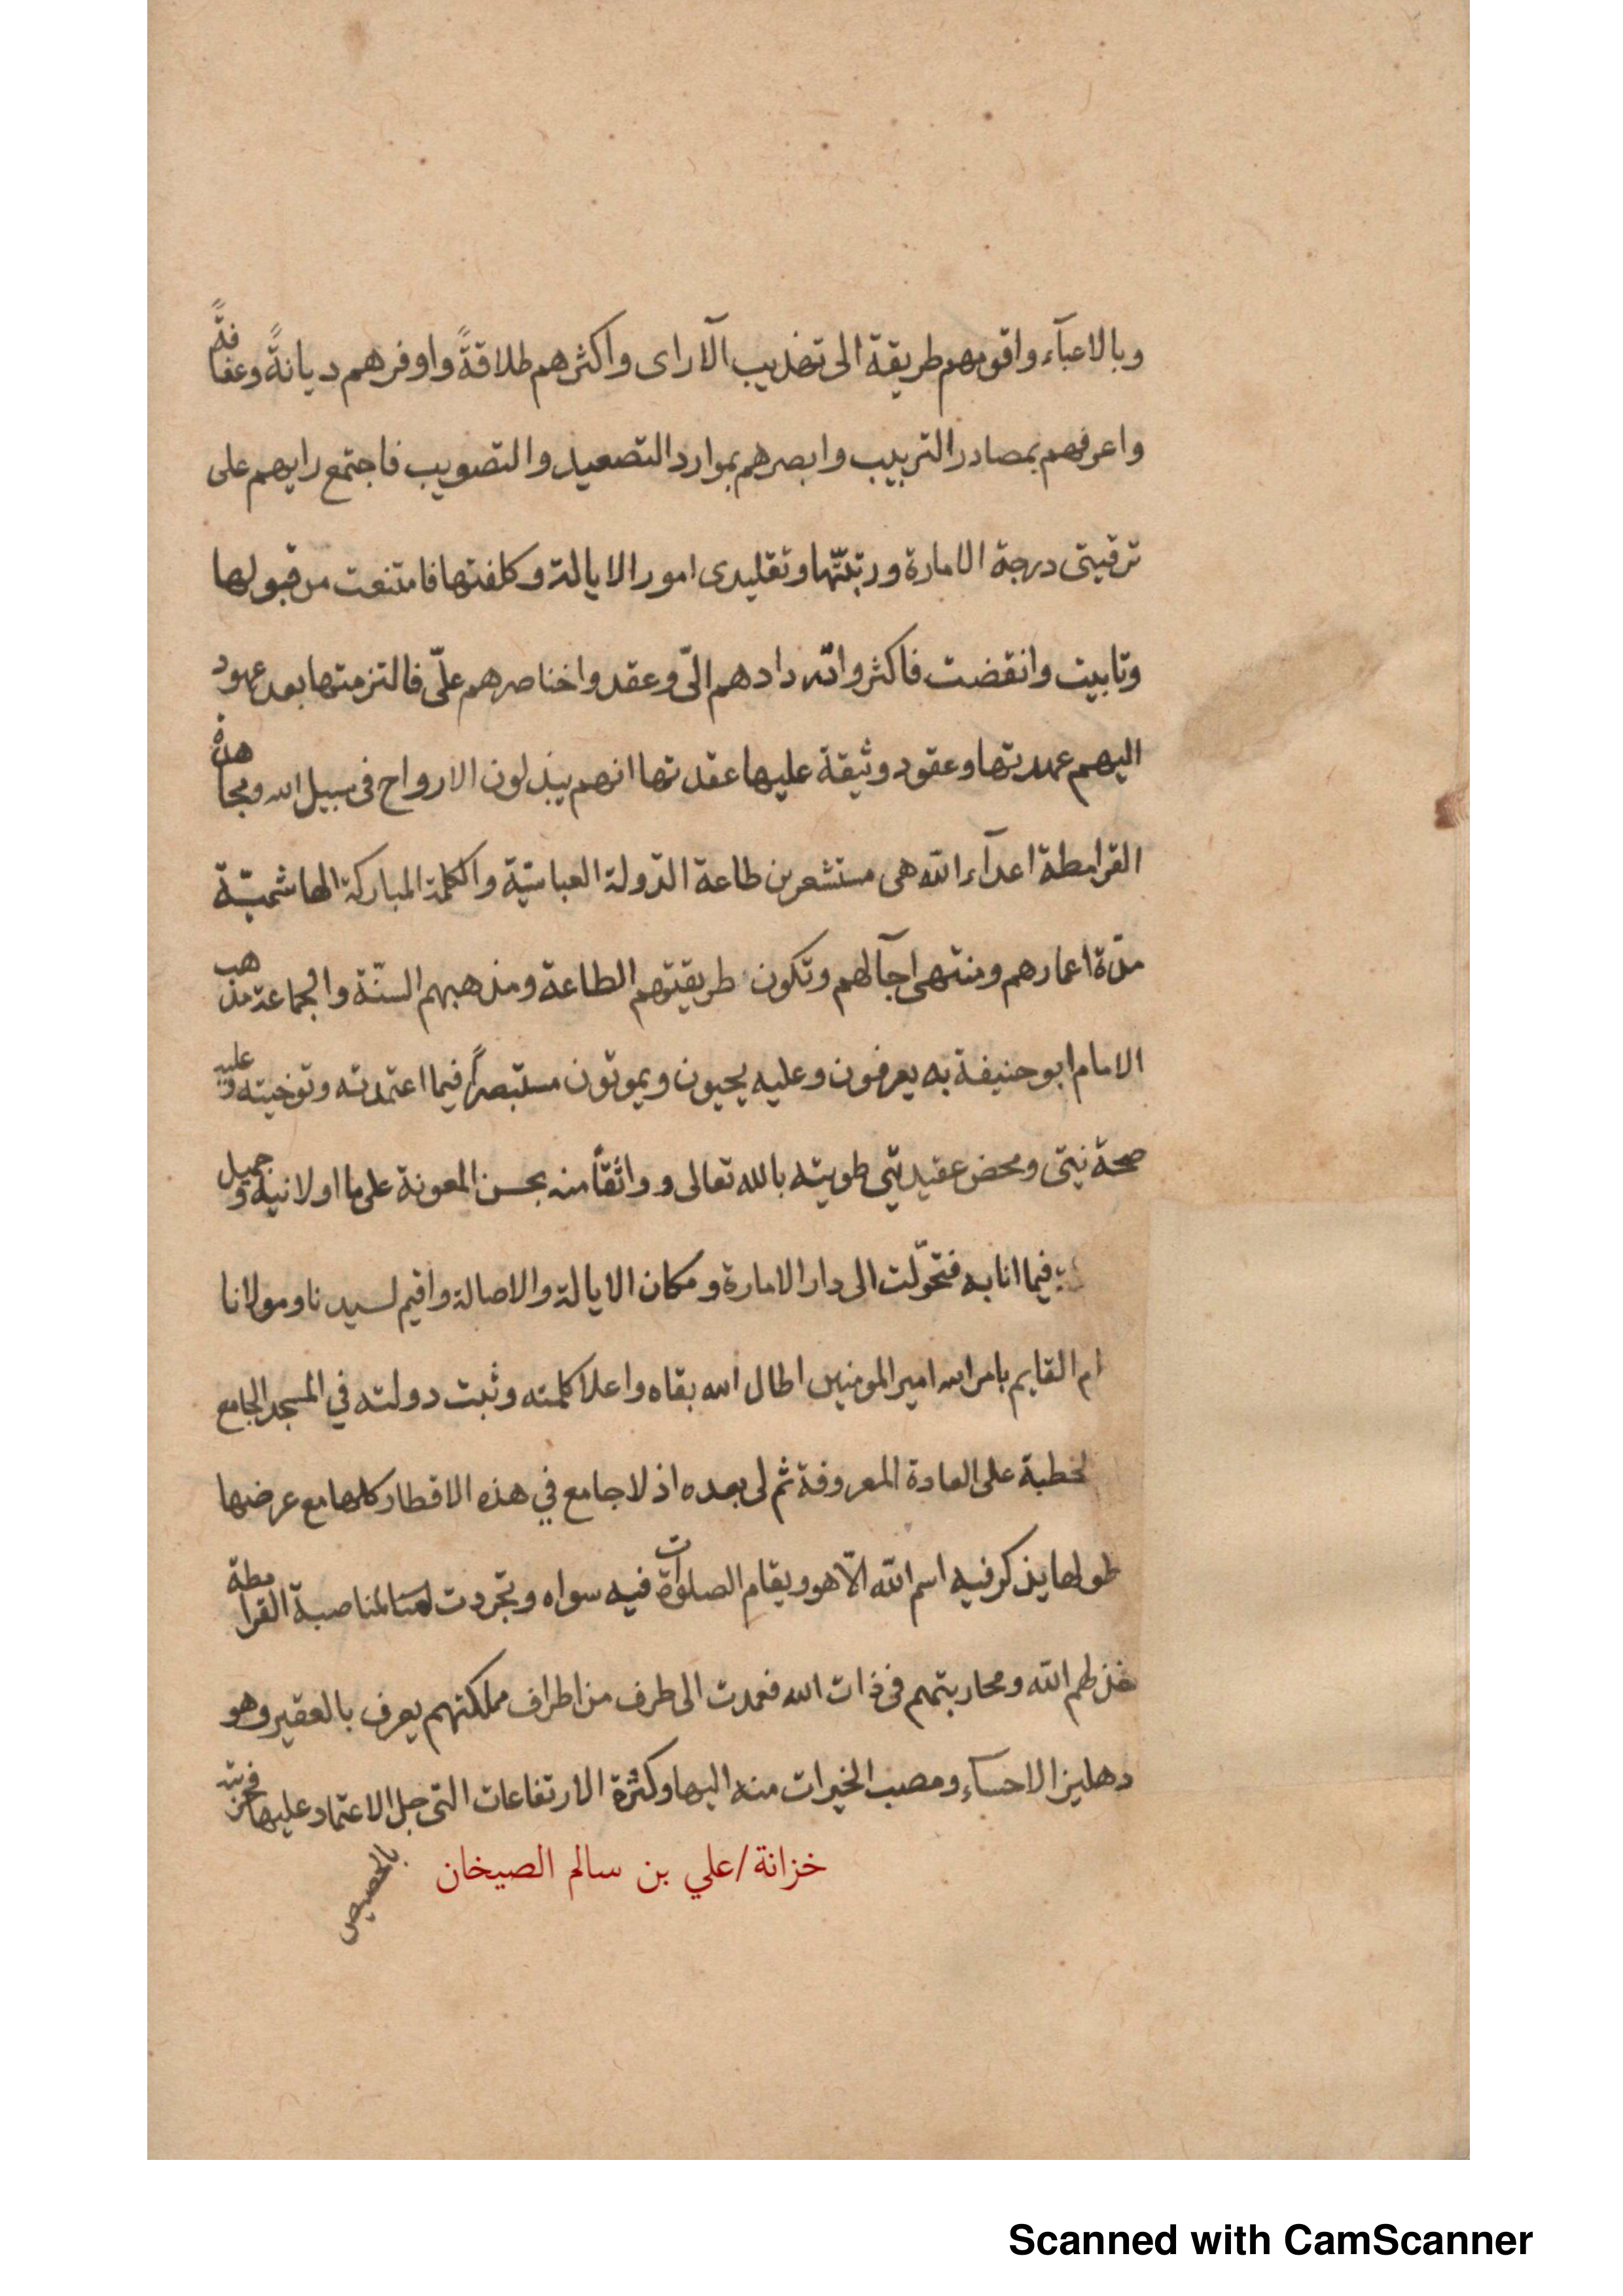 وبالاعبآء واقومهم طريقة الى تهذيب الآراى واكثرهم طلاقةً واوفرهم ديانةً وعفافةً
واعرفهم بمصادر التربيب وابصرهم بموارد التصعيد والتصويب فاجتمع رايهم على
ترقيتى درجة الامارة ورتبتّها وتقليدى امور الايالة وكلفتها فامتنعت من قبولها
وتابيت وانقضت فاكثروا تردادهم الىّ وعقدوا خناصرهم علىّ فالتزمتها بعد عهود
اليهم عهدتها وعقود وثيقة عليها عقدتها انهم يبذلون الارواح فى سبيل الله ومجاهدة
القرامطة اعدآء الله هى مستشعرين طاعة الدّولة العباسيّة والكلمة المباركة الهاشميّة
مدّة اعمارهم ومنتهى آجآلهم وتكون طريقتهم الطاعة ومذهبهم السنّة والجماعة مذهب
الامام ابو حنيفة به يعرفون وعليه يحيون ويموتون مستبصراً فيما اعتمدته وتوخيته وعليه
صحة نيتى ومحض عقيدتي طويته بالله تعالى و واثقاً منه بحسن المعونة على ما اولانيه وجميل
فيما انابه فتحوّلت الى دار الامارة ومكان الايالة والاصالة واقيم لسيدنا ومولانا
ام القايم بامر الله امير المومنين اطال الله بقاه واعلا كلمته وثبت دولته في المسجد الجامع
لخطبة على العادة المعروفة ثم لى بعده اذ لا جامع في هذه الاقطار كلها مع عرضها
طولها يذكر فيه اسم الله الّا هو ويقام الصلوات فيه سواه وتجردت لمناصبة القرامطة
خذلهم الله ومحاربتهم فى ذات الله فعمدت الى طرف من اطراف مملكتهم يعرف بالعقير وهو
دهليز الاحسآء ومصب الخيرات منه اليها وكثرة الارتفاعات التى جل الاعتماد عليها فخربته
بالحصيص
خزانة/علي بن سالم الصيخان
Scanned with CamScanner